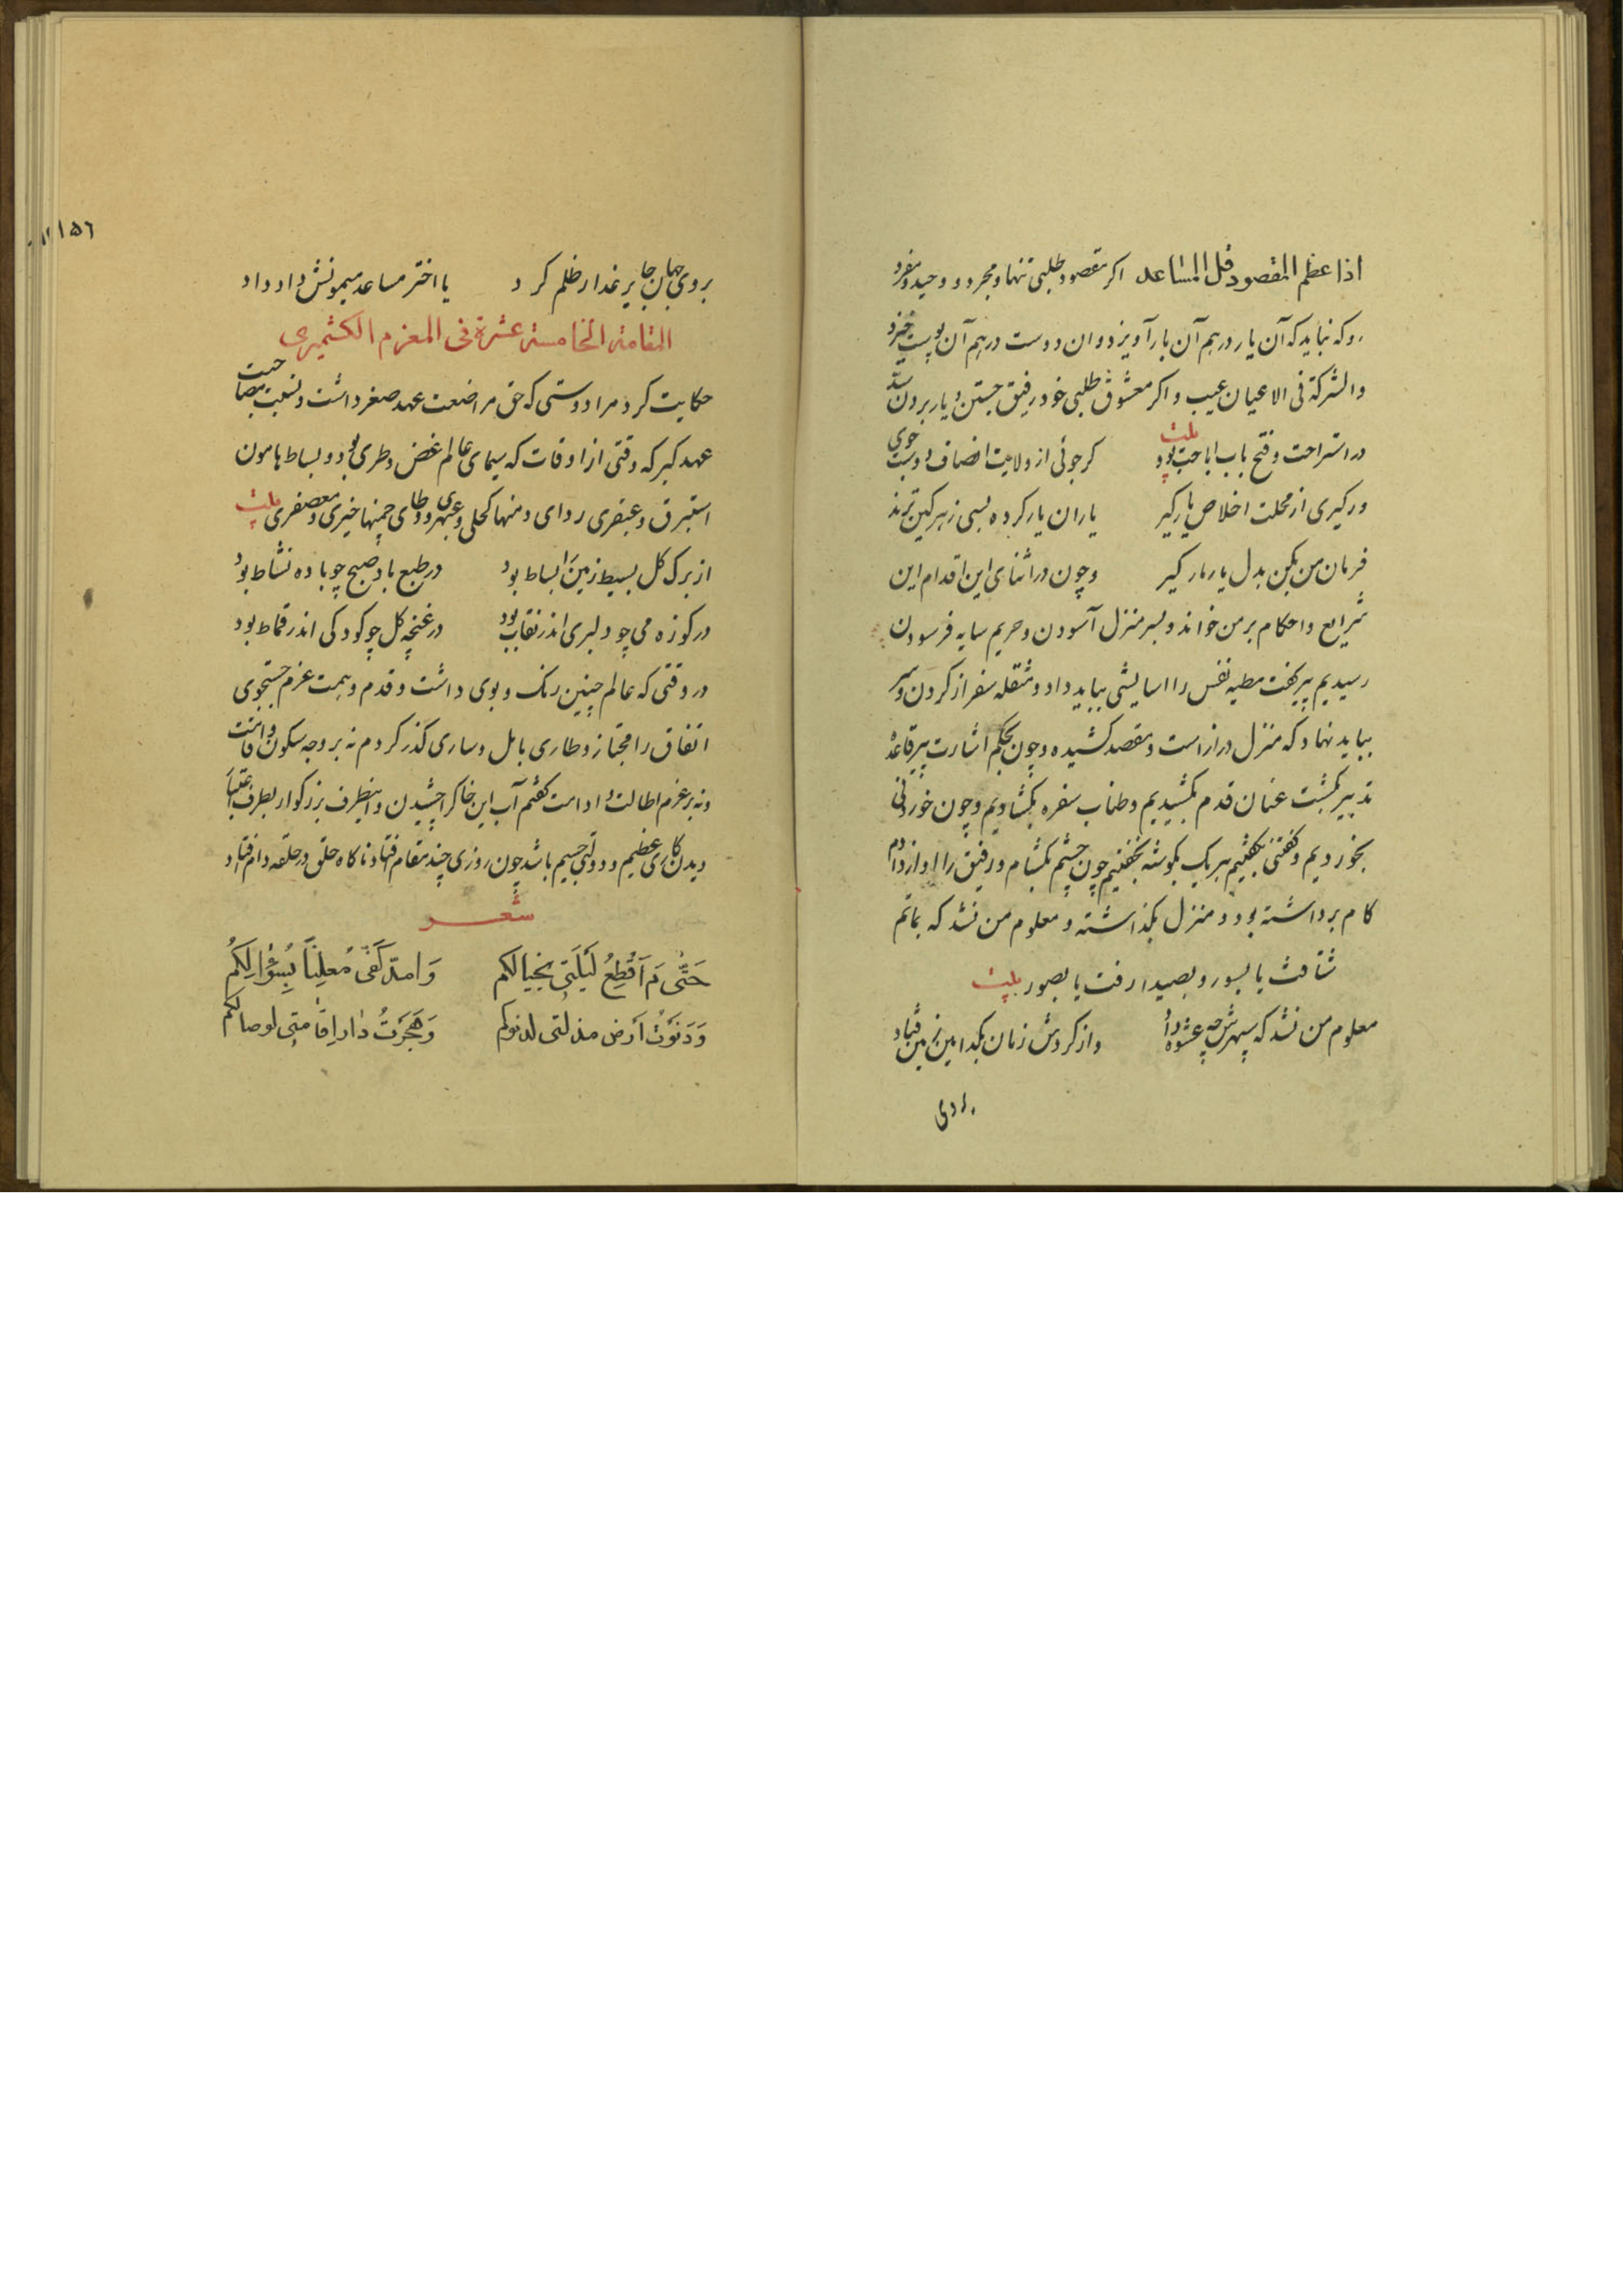 اذا عظم المقصود قل المساعد اکر مقصود طلبی تنها و مجرد رو و حید و مفرد
رو که نباید که آن یار درهم آن بار آویزد و ان دوست درهم آن پوست خیزد
والشرکة فی الاعیان عیب و اکر معشوق طلبی خود رفیق جستن و یار بردن سد
در استراحت و فتح باب اباحت بود بیت کر جوئی از ولایت انصاف دوست جوی
ور کیری از محلت اخلاص یار کیر یاران یار کرده بسی زهر کین ترند
فرمان من بکن بدل یار مار کیر و چون در اثنای این اقدام این
شرایع و احکام بر من خواند و بسر منزل آسودن و حریم سایه فرسودن
رسیدیم پیر کفت مطیه نفس را اسایشی بباید داد و مثقله سفر از کردن و سر
بباید نهاد که منزل دراز است و مقصد کشیده و چون بحکم اشارت پیر قاعدۀ
تدبیر کشت عنان قدم بکشیدیم و طناب سفره بکشادیم و چون خوردنی
بخوردیم و کفتنی بکفتیم هر یک بکوشه بخفتیم چون چشم بکشام و رفیق را اواز دادم
کام برداشته بود و منزل بکذاشته و معلوم من نشد که بماتم
شتافت یا بسور و بصیدا رفت یا بصور بیت
معلوم من نشد که سپهرش چه عشوه داد واز کردش زمان بکدامین زمین فتاد
با وی
۱۵۶
بر وی جهان جایر غدار ظلم کرد یا اختر مساعد میمونش داد داد
المقامة الخامسة عشرة فی المعزم الکشمیری
حکایت کرد مرا دوستی که حق مراضعت عهد صغر داشت و نسبت مصاحبت
عهد کبر که وقتی از اوقات که سیمای عالم غض و طری بود و بساط هامون
استبرق و عبقری ردای دمنها کحلی و عبهری و وطای چمنها خیری و معصفری بیت
از برک کل بسیط زمین را بساط بود در طبع باد صبح چو باده نشاط بود
در کوزه می چو دلبری اندر نقاب بود در غنچه کل چو کودکی اندر قماط بود
در وقتی که عالم چنین رنک و بوی داشت و قدم و همت عزم جستجوی
اتفاق را مجتاز و طاری بامل و ساری کذر کردم نه بر وجه سکون و اقامت
و نه بر عزم اطالت و ادامت کفتم آب این خاک را چشیدن و این طرف بزرکوار بطرف
دیدن کاری عظیم و دولتی جسیم باشد چون روزی چند مقام افتاد ناکاه حلق در حلقه دام افتاد
شعر
حَتّٰی مَ اَقْطَعُ لَیْلَتی بخیالکم وَ امدّ کَفّی مُعلِناً بِسُؤالِکُم
وَ دَنَوْتُ اَرض مذلتی لدنوکم وَ هَجَرَتُ دار اِقامتی لوصالکم